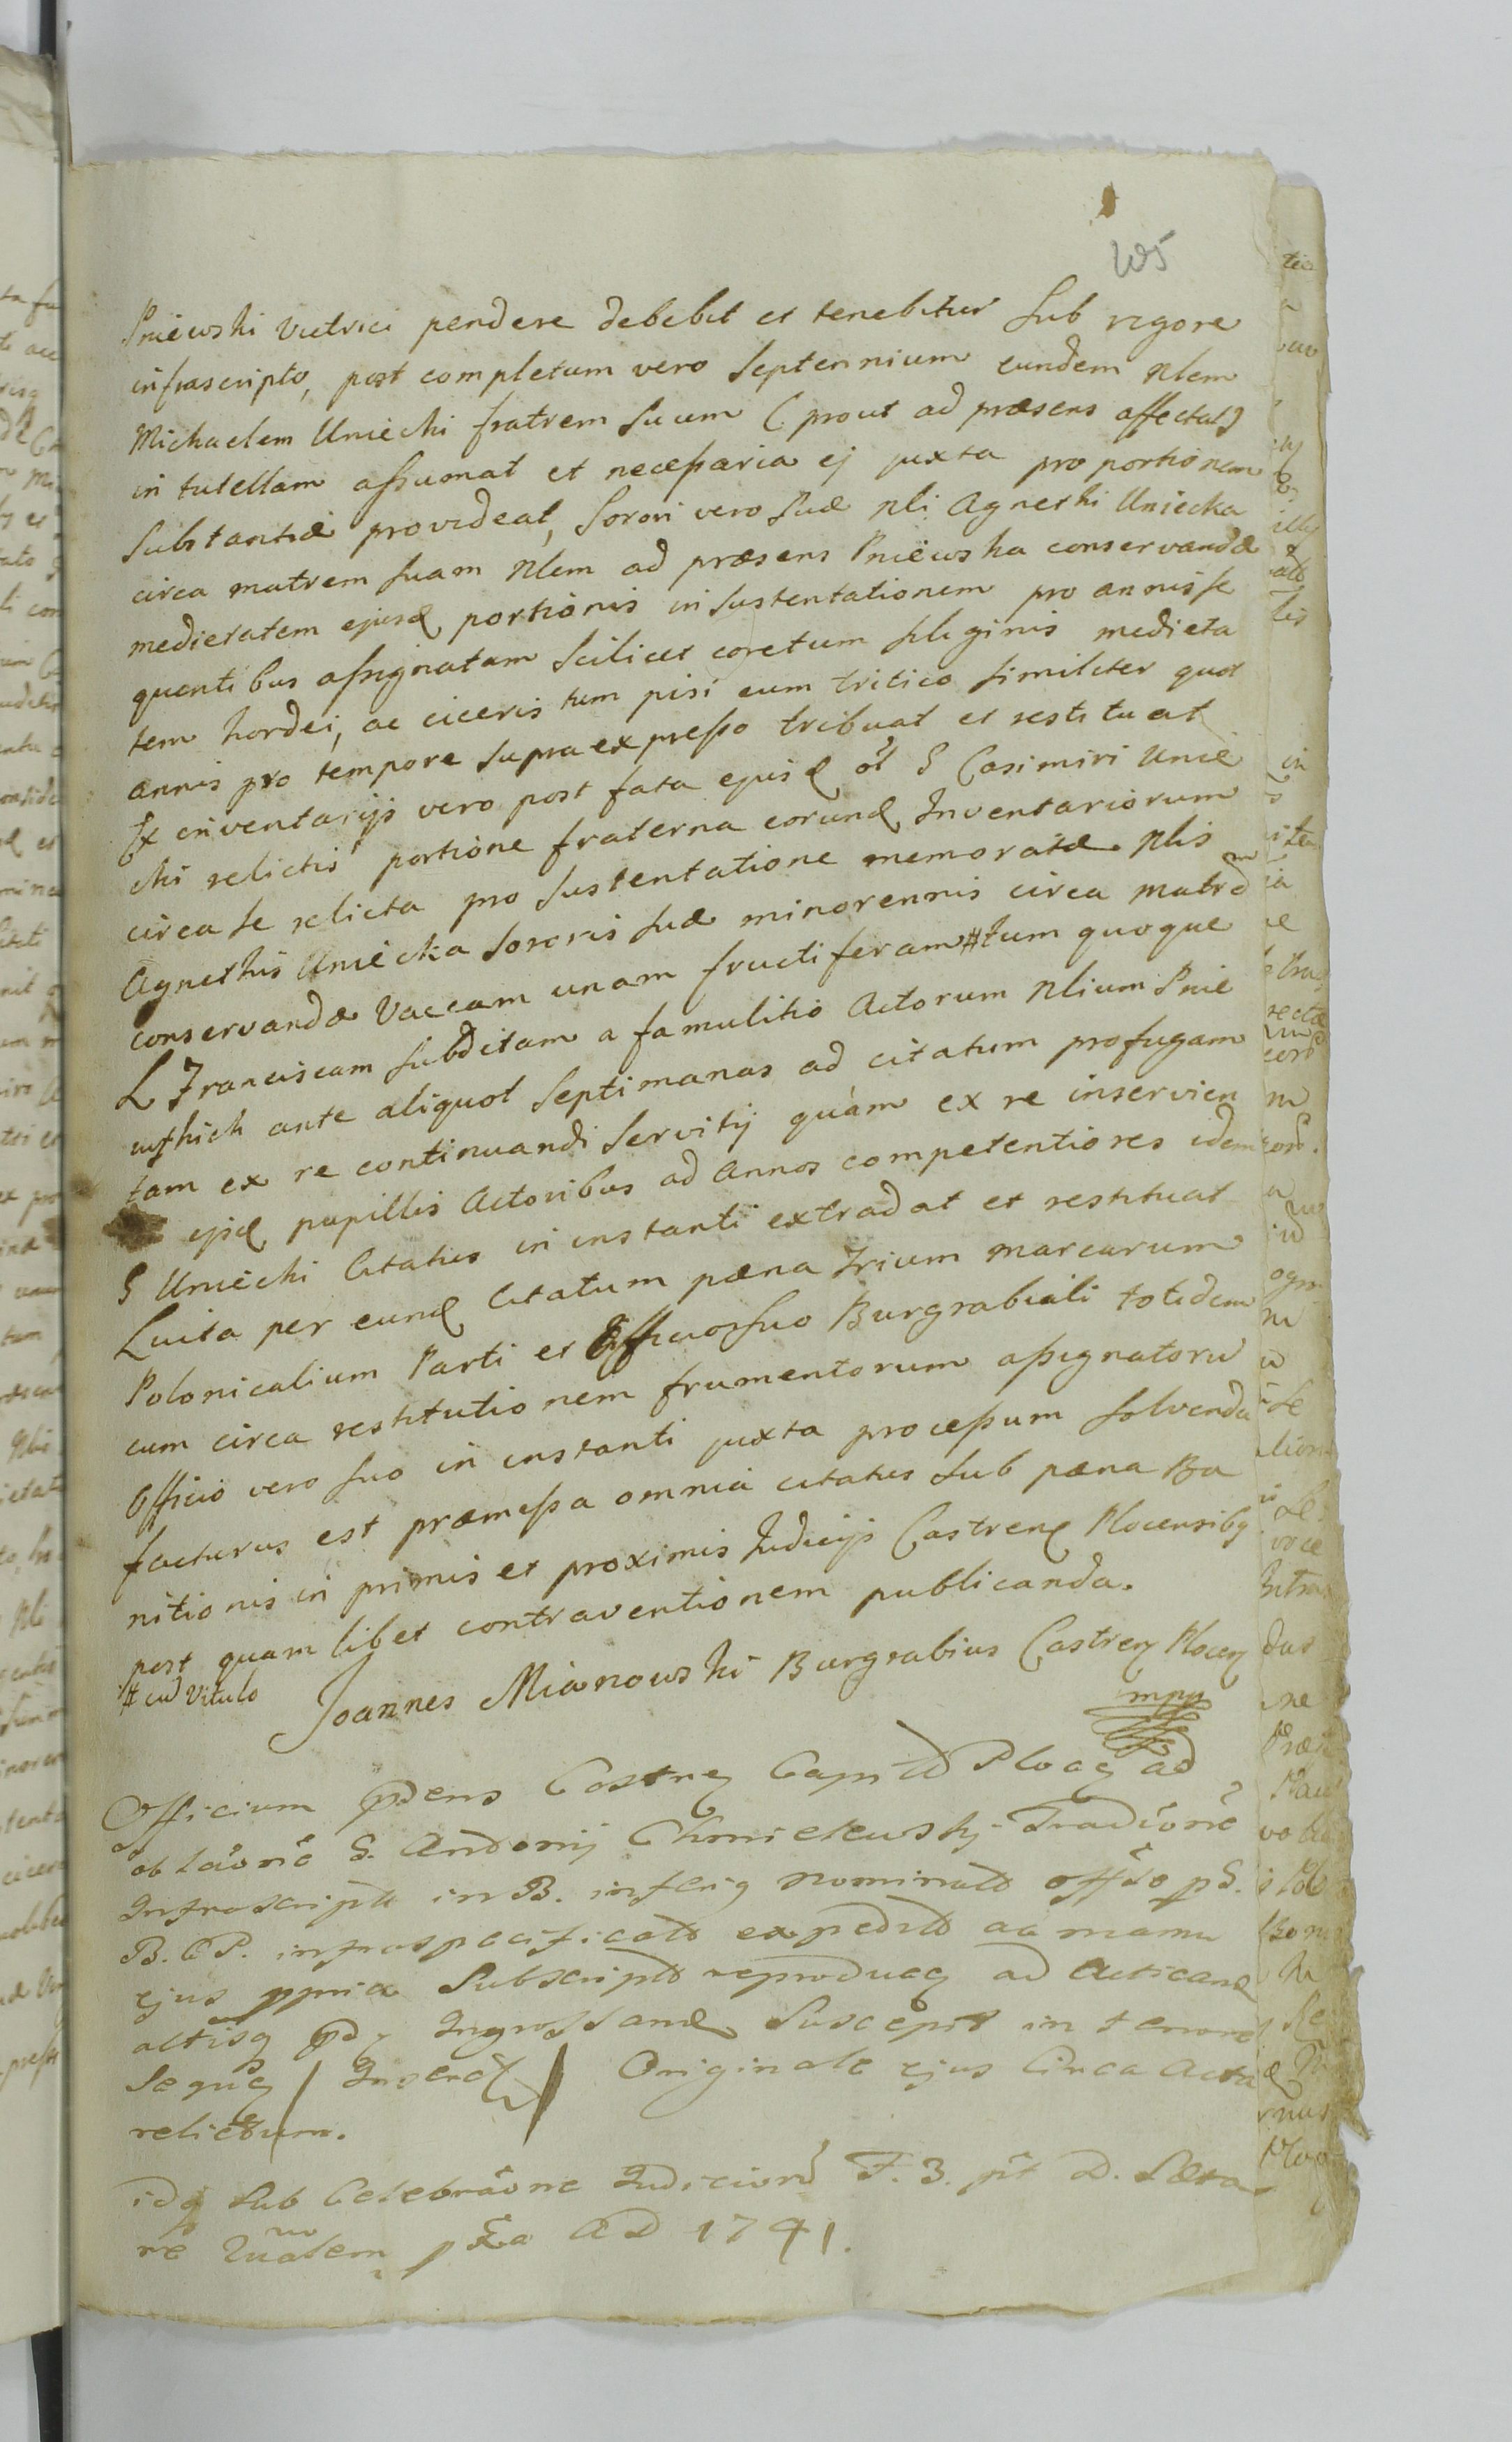 105
Pniewski vutrici pendere debebit et tenebitur Sub rigore
infrascripto, post completum vero Septennium eundem Nlem
Michaelem Uniecki fratrem Suum (prout ad præsens affectat)
in tutellam assumat et necessaria ej juxta proportionem
Substantiæ provideat, Sorori vero Suæ Nli Agneski Uniecka
circa matrem Suam Nlem ad præsens Pniewska conservandæ
medietatem ejusd portionis in Sustentationem pro annis Se
quentibus assignatam Scilicet coretum Siliginis medieta
tem hordei, ac ciceris tum pisi cum tritico Similiter quot
annis pro tempore Supra expresso tribuat et restituat
Ex inventarijs vero post fata ejusd ol G Casimiri Unie
cki relictis portione fraterna eorund Inventariorum
circa se relicta pro Sustentatione memoratæ Nlis
Agnethis Uniecka Sororis Suæ minorennis circa matrem
conservandæ Vaccam unam fructiferam # tum quoque
L Franciscam Subditam a famulitio Actorum Nlium Pnie
wskich ante aliquot Septimanas ad citatum profugam
tam ex re continuandi Servitij quàm ex re inservien
ejsd pupillis Actoribus ad annos competentiores idem
G Uniecki Citatus in instanti extradat et restituat
Luita per eund Citatum pæna trium marcarum
Polonicalium Parti et Officio Suo Burgrabiali totidem
cum circa restitutionem frumentorum assignatorū
Officio vero Suo in instanti juxta processum Solvenda
facturus est præmissa omnia citatus Sub pæna Ba
nitionis in primis et proximis Judicijs Castren Plocensibq
post quam libet contraventionem publicanda.
# cū Vitulo
Joannes Mianowski Burgrabius Castren Plocen
mpp
Officium pdens Castren Capitle Plocen ad
oblaōnē G. Andonij Chmielewskj Tradiōnē
Infrascripte in B. inferiq nominato offio p G.
B. C P. infraspecificato expedite ac manu
ejus ppria Subscripto reproducen ad Acticand
actisq pd Ingrossand Suscepit in tenore
Sequen / Inserat / Originale ejus Circa Acta
relictum.
idq Sub Celebraōne Judiciorū F. 3. pt D. Læta
re
A D 1741.